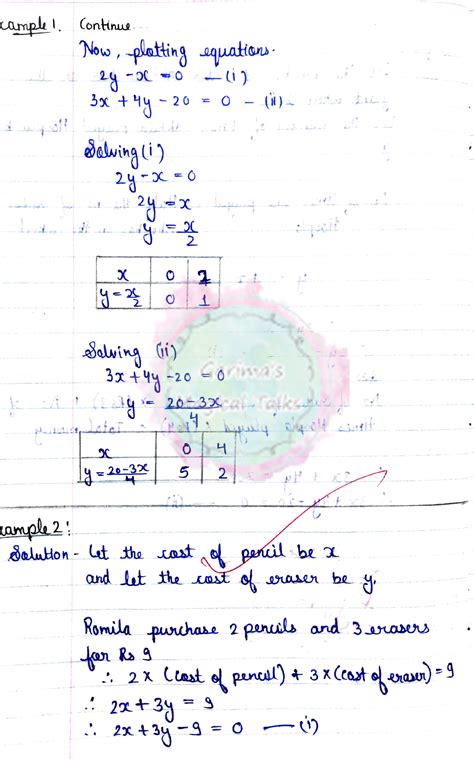 xample 1. Continue
Now, plotting equations.
2y - x = 0 — (i)
3x + 4y - 20 = 0 - (ii) -
Solving (i)
2y - x = 0
2y = x
y = x/2
x 0 2
y = x/2 0 1
Solving (ii)
3x + 4y - 20 = 0
y = 20-3x/4
x 0 4
y = 20-3x/4 5 2
Garima's
Talks
xample 2:
Solution - Let the cost of pencil be x
and let the cost of eraser be y.
Romila purchase 2 pencils and 3 erasers
for Rs 9
∴ 2 × (cost of pencil) + 3 × (cost of eraser) = 9
∴ 2x + 3y = 9
∴ 2x + 3y - 9 = 0 — (i)